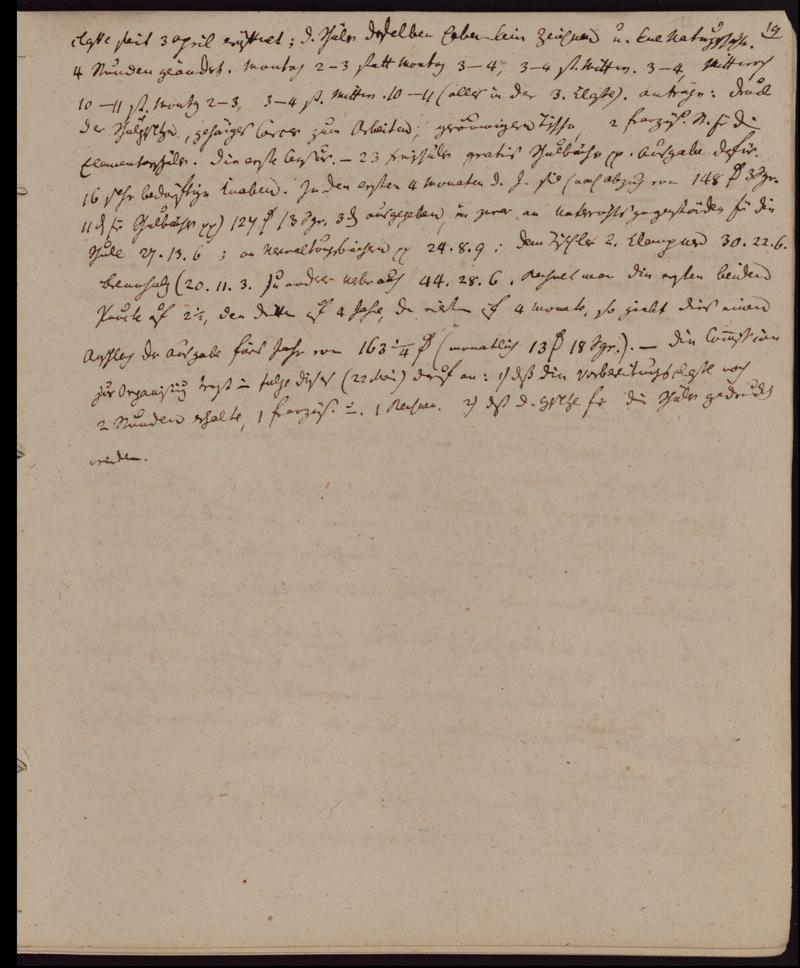 19
Classe seit 3 April eröffnet; d. Schüler derselben haben kein Zeichnen u. keine Naturgesch.
4 Stunden geändert. Montag 2–3 statt Montag 3–4, 3–4 st. Mittw. 3–4, Mittwoch
10–11 st. Montg 2–3, 3–4 st. Mittw. 10–11 (alles in der 3. Classe). Anträge: Druck
der Schulgesetze, gehöriges Carcer zum Arbeiten, geräumigere Tische, 2 französ. St. für die
Elementarschüler. Die erste Censur. – 23 Freischüler gratis Schulbücher pp. Ausgabe dafür.
16 sehr bedürftige Knaben. In den ersten 4 Monaten d. J. sind (nach Abzug von 148 ₰ 3 Sgr.
11 ₰ für Schulbücher pp) 127 ₰ 13 Sgr. 3 ₰ ausgegeben, u. zwar an Unterrichtsgegenständen für die
Schule 27.13.6; an Verwaltungsbüchern pp 24.8.9; dem Tischler 30.22.6.
Brennholz (20.11.3. zu anderm Gebrauch 44.28.6. Rechnet man die ersten beiden
Puncte auf 2½, den dritten auf 4 Jahre, den vierten auf 4 Monate, so giebt dies einen
Anschlag der Ausgabe fürs Jahr von 163¼ ₰ (monatlich 13 ₰ 18 Sgr.). – Die Commission
zur Organisirung trägt in Folge dieses (22 Mai) darauf an: 1) daß die Vorbereitungsclasse noch
2 Stunden erhalte, 1 französ. u. 1 Rechnen. 2) daß d. Gesetze für die Schüler gedruckt
werden.